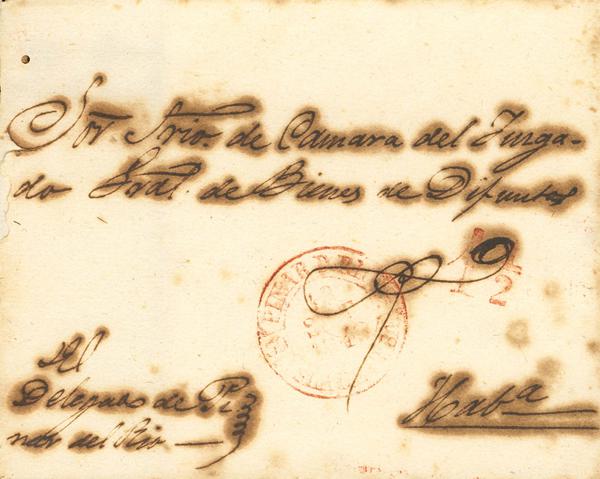 Sor. Srio. de Camara del Juzga-
do Gral. de Bienes de Difuntos
1/2
Del
Delegado de Pi
nar del Rio
Haba